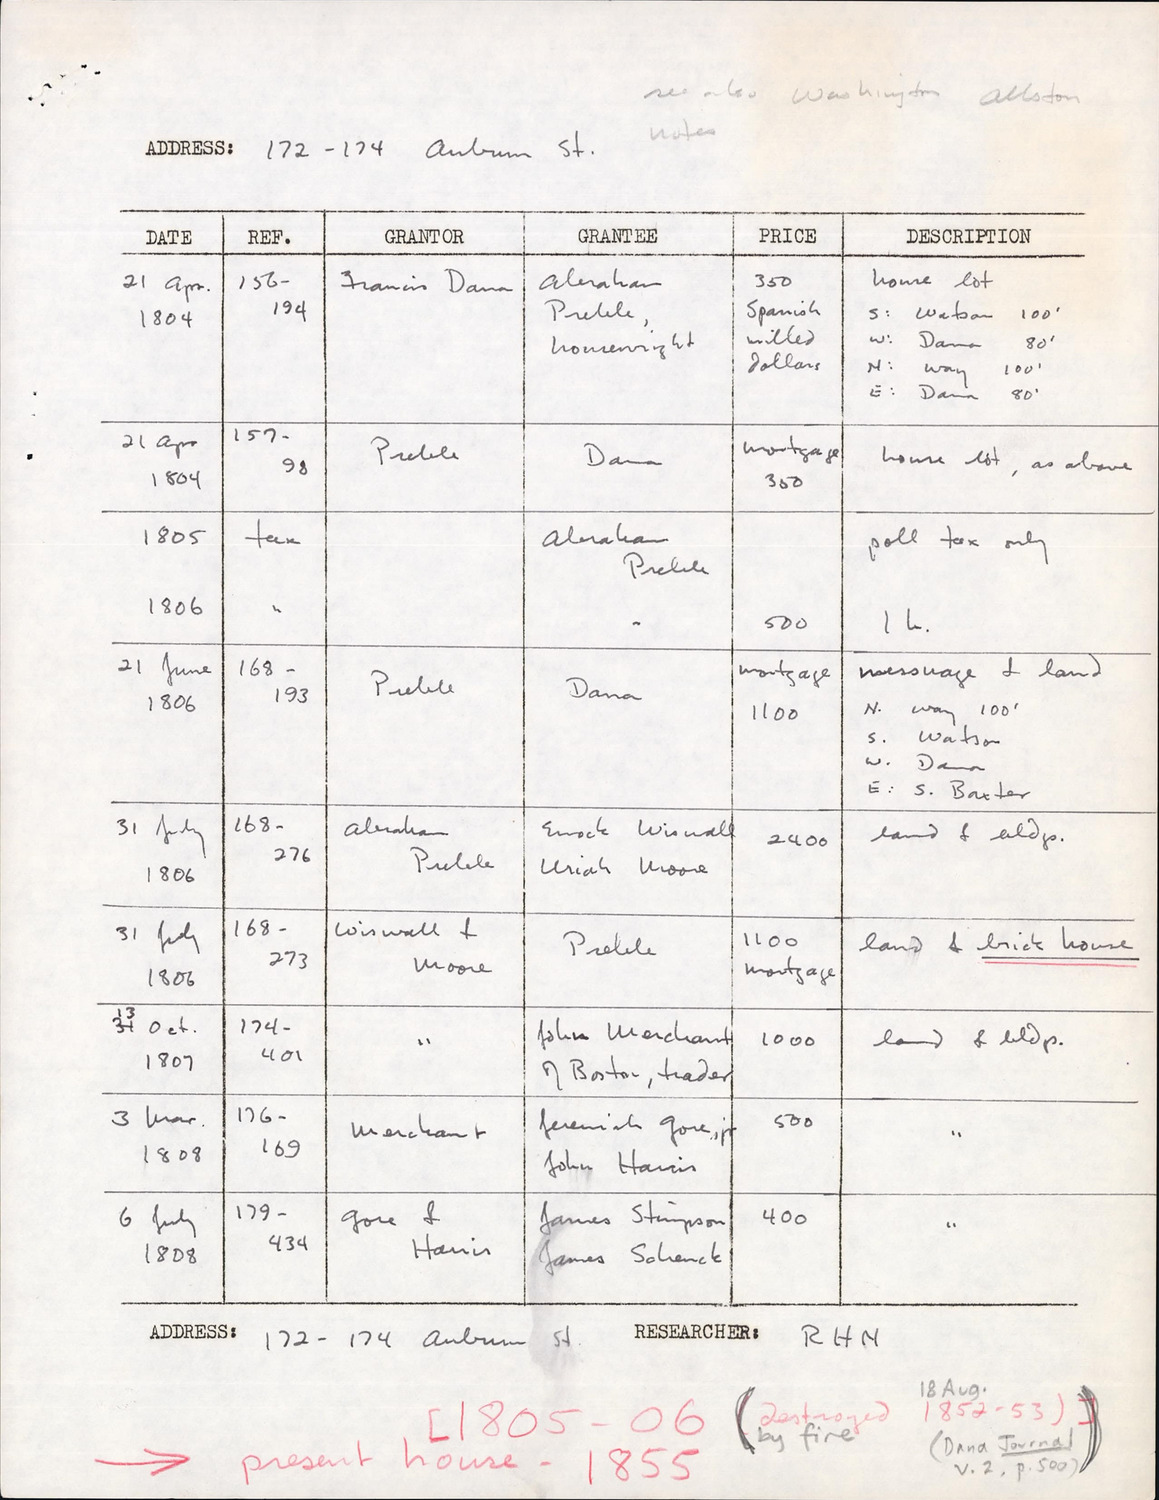 see also Washington Allston
notes
ADDRESS: 172-174 Auburn St.
DATE REF. GRANTOR GRANTEE PRICE DESCRIPTION
21 Apr. 1804 156-194 Francis Dana Abraham Preble, housewright 350 Spanish milled dollars house lot
S: Watson 100'
W: Dana 80'
N: way 100'
E: Dana 80'
21 Apr 1804 157-98 Preble Dana mortgage 350 house lot, as above
1805 tax Abraham Preble poll tax only
1806 " " 500 1 h.
21 June 1806 168-193 Preble Dana mortgage 1100 messuage & land
N. way 100'
S. Watson
W. Dana
E: S. Baxter
31 July 1806 168-276 Abraham Preble Enock Wiswall Uriah Moore 2400 land & bldgs.
31 July 1806 168-273 Wiswall & Moore Preble 1100 mortgage land & brick house
13 Oct. 1807 174-401 " John Merchant of Boston, trader 1000 land & bldgs.
3 Mar. 1808 176-169 Merchant Jeremiah Gore, jr John Harris 500 "
6 July 1808 179-434 Gore & Harris James Stimpson James Schenck 400 "
ADDRESS: 172-174 Auburn St. RESEARCHER: RHN
[1805-06 (destroyed by fire 18 Aug. 1852-53)]
(Dana Journal
v. 2, p. 500)
→ present house - 1855